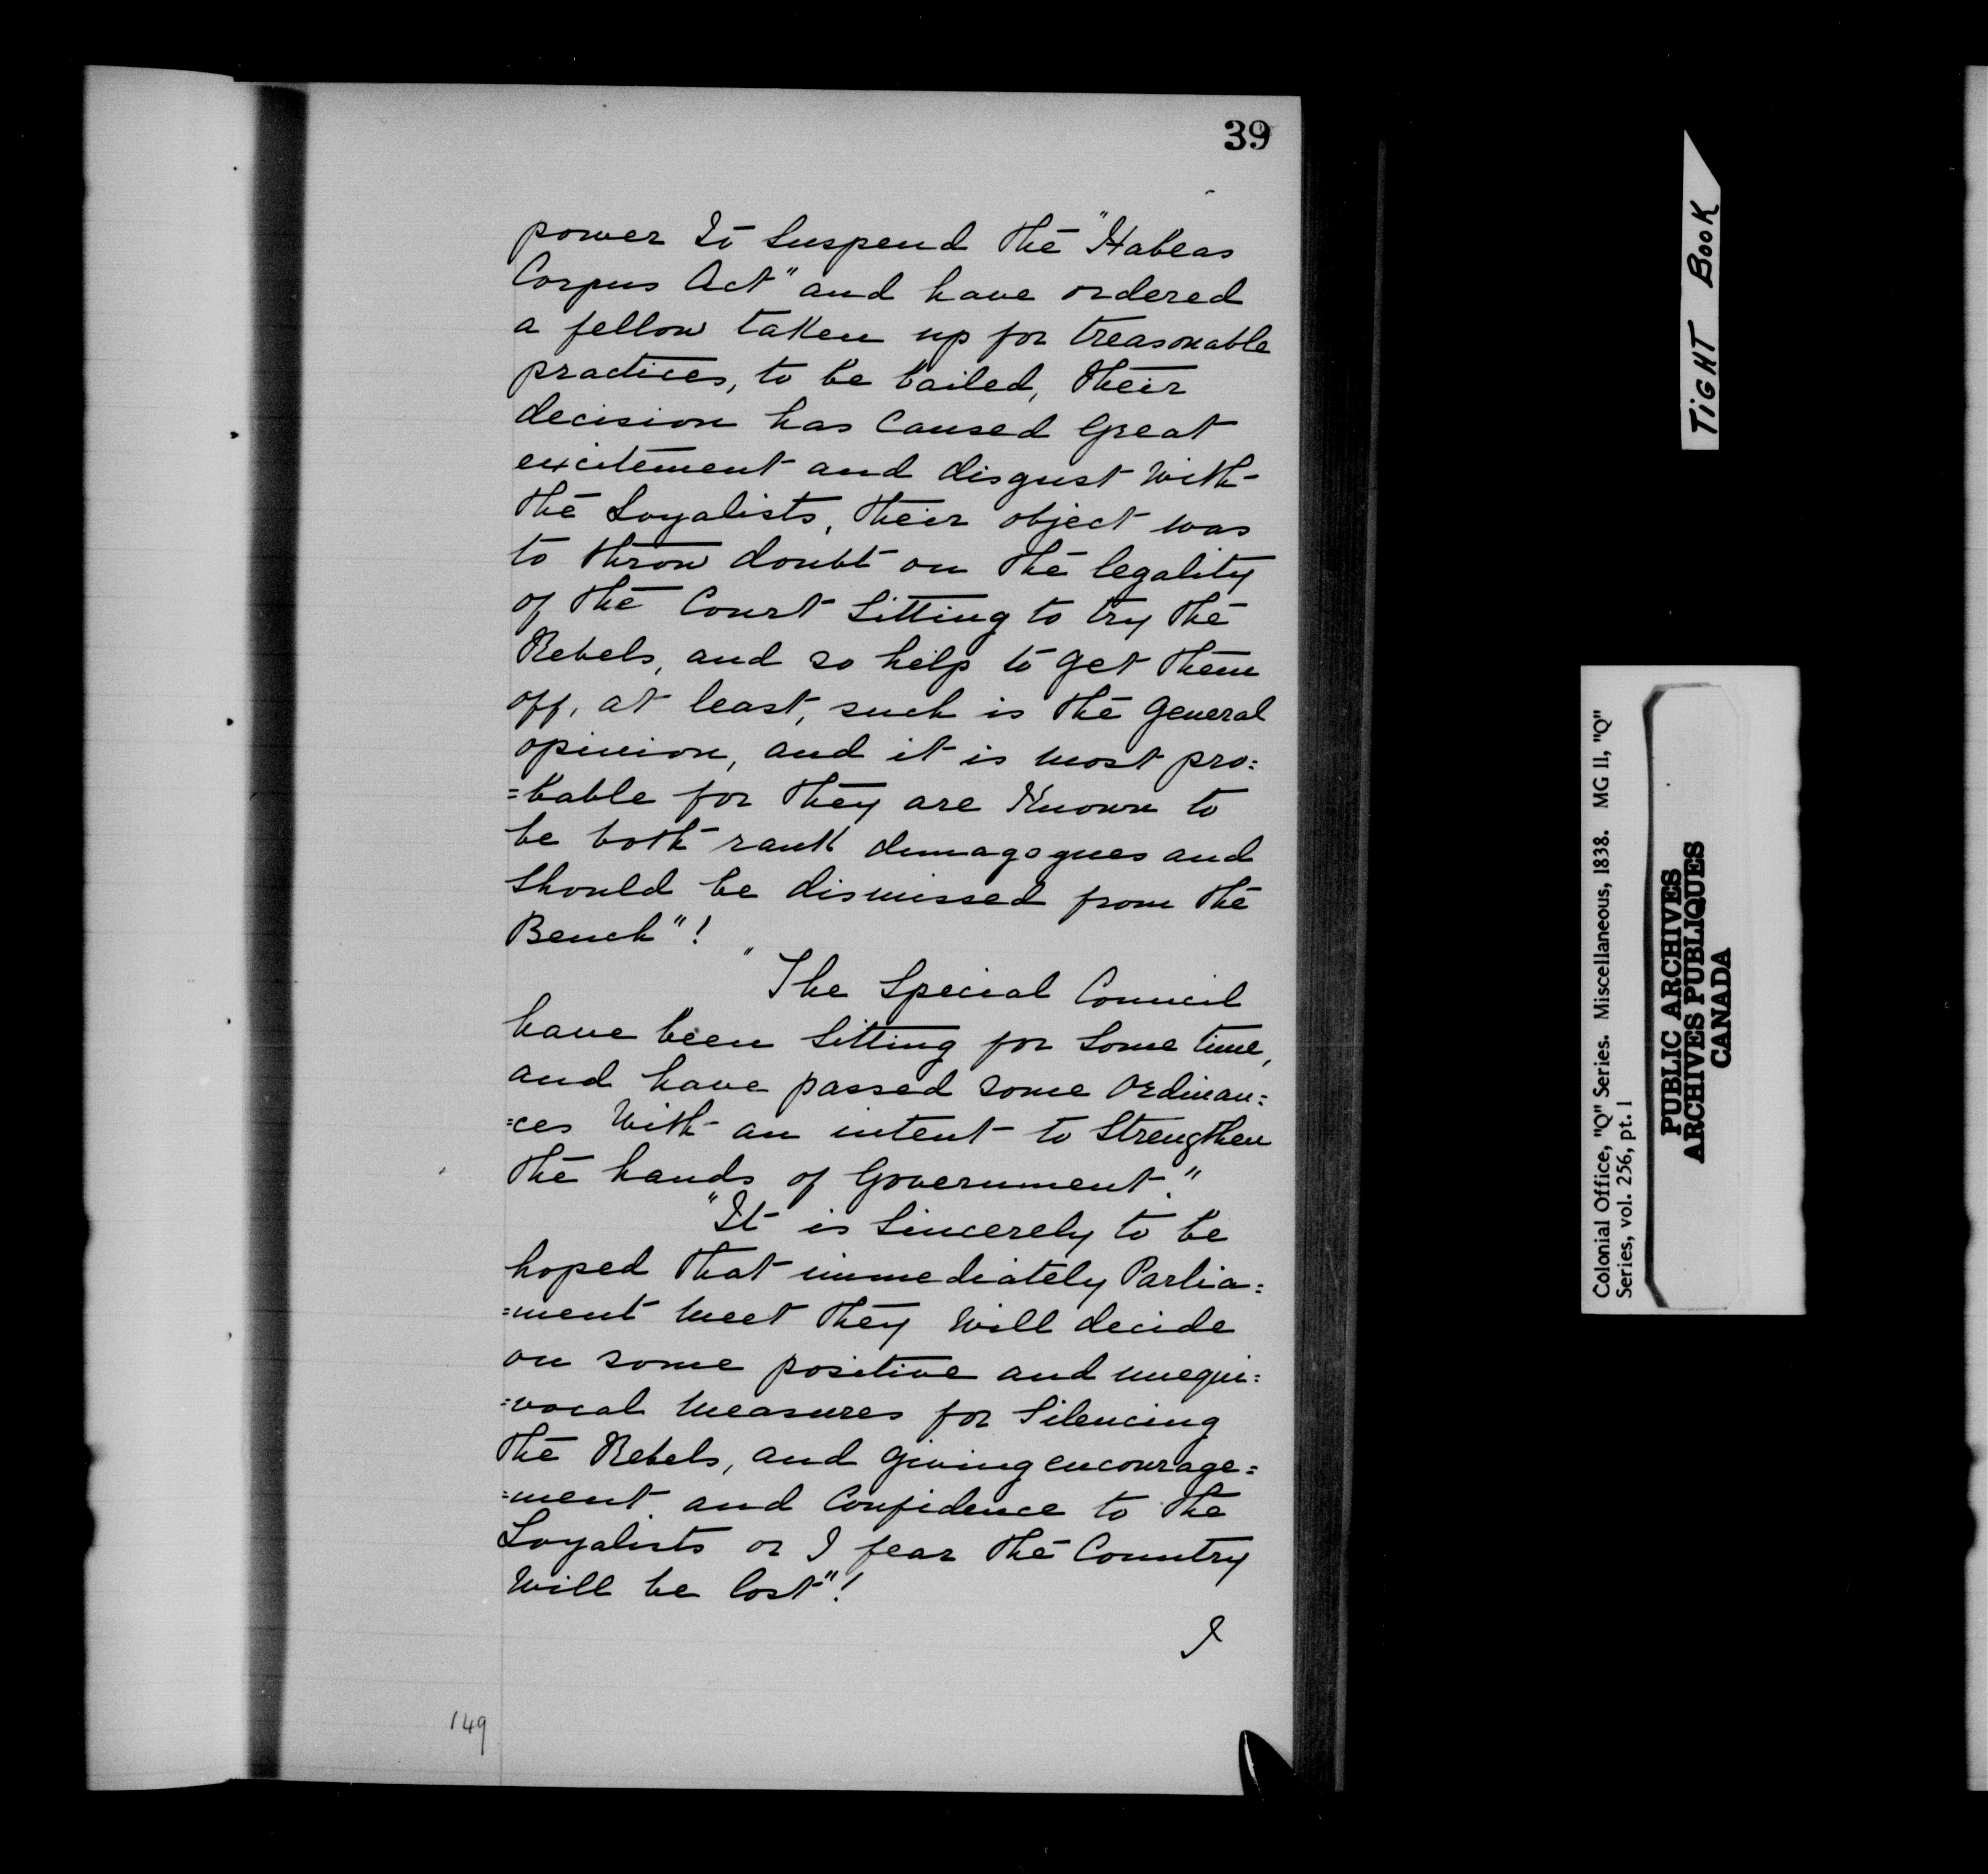 39
power to suspend the "Habeas
Corpus Act" and have ordered
a fellow taken up for treasonable
practices, to be bailed, their
decision has caused great
excitement and disgust with
the Loyalists, their object was
to throw doubt on the legality
of the Court sitting to try the
Rebels, and so help to get them
off, at least, such is the general
opinion, and it is most pro=
=bable for they are known to
be both rank demagogues and
should be dismissed from the
Bench"!
"The Special Council
have been sitting for some time,
and have passed some Ordinan=
=ces with an intent to strengthen
the hands of Government."
"It is sincerely to be
hoped that immediately Parlia=
=ment meet they will decide
on some positive and unequi=
=vocal measures for silencing
the Rebels, and giving encourage=
=ment and confidence to the
Loyalists or I fear the Country
will be lost"!
I
149
TIGHT BOOK
Colonial Office, "Q" Series. Miscellaneous, 1838. MG 11, "Q"
Series, vol. 256, pt. 1
PUBLIC ARCHIVES
ARCHIVES PUBLIQUES
CANADA